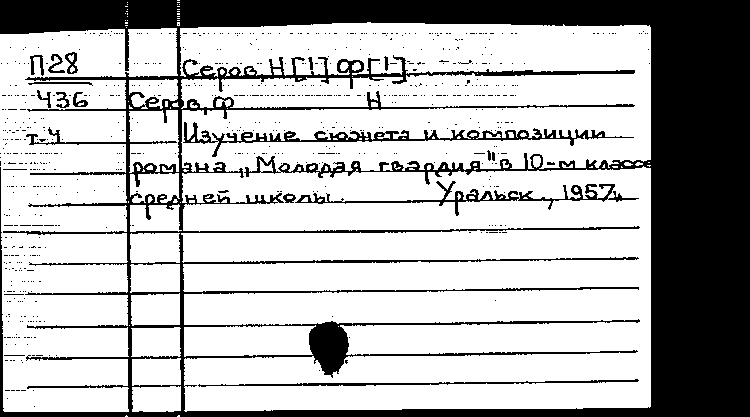 П28 Серов, Н[!] Ф[!].
436 Серов, Ф Н
т-4 Изучение сюжета и композиции
романа „Молодая гвардия" в 10-м классе
средней школы. Уральск., 1957.